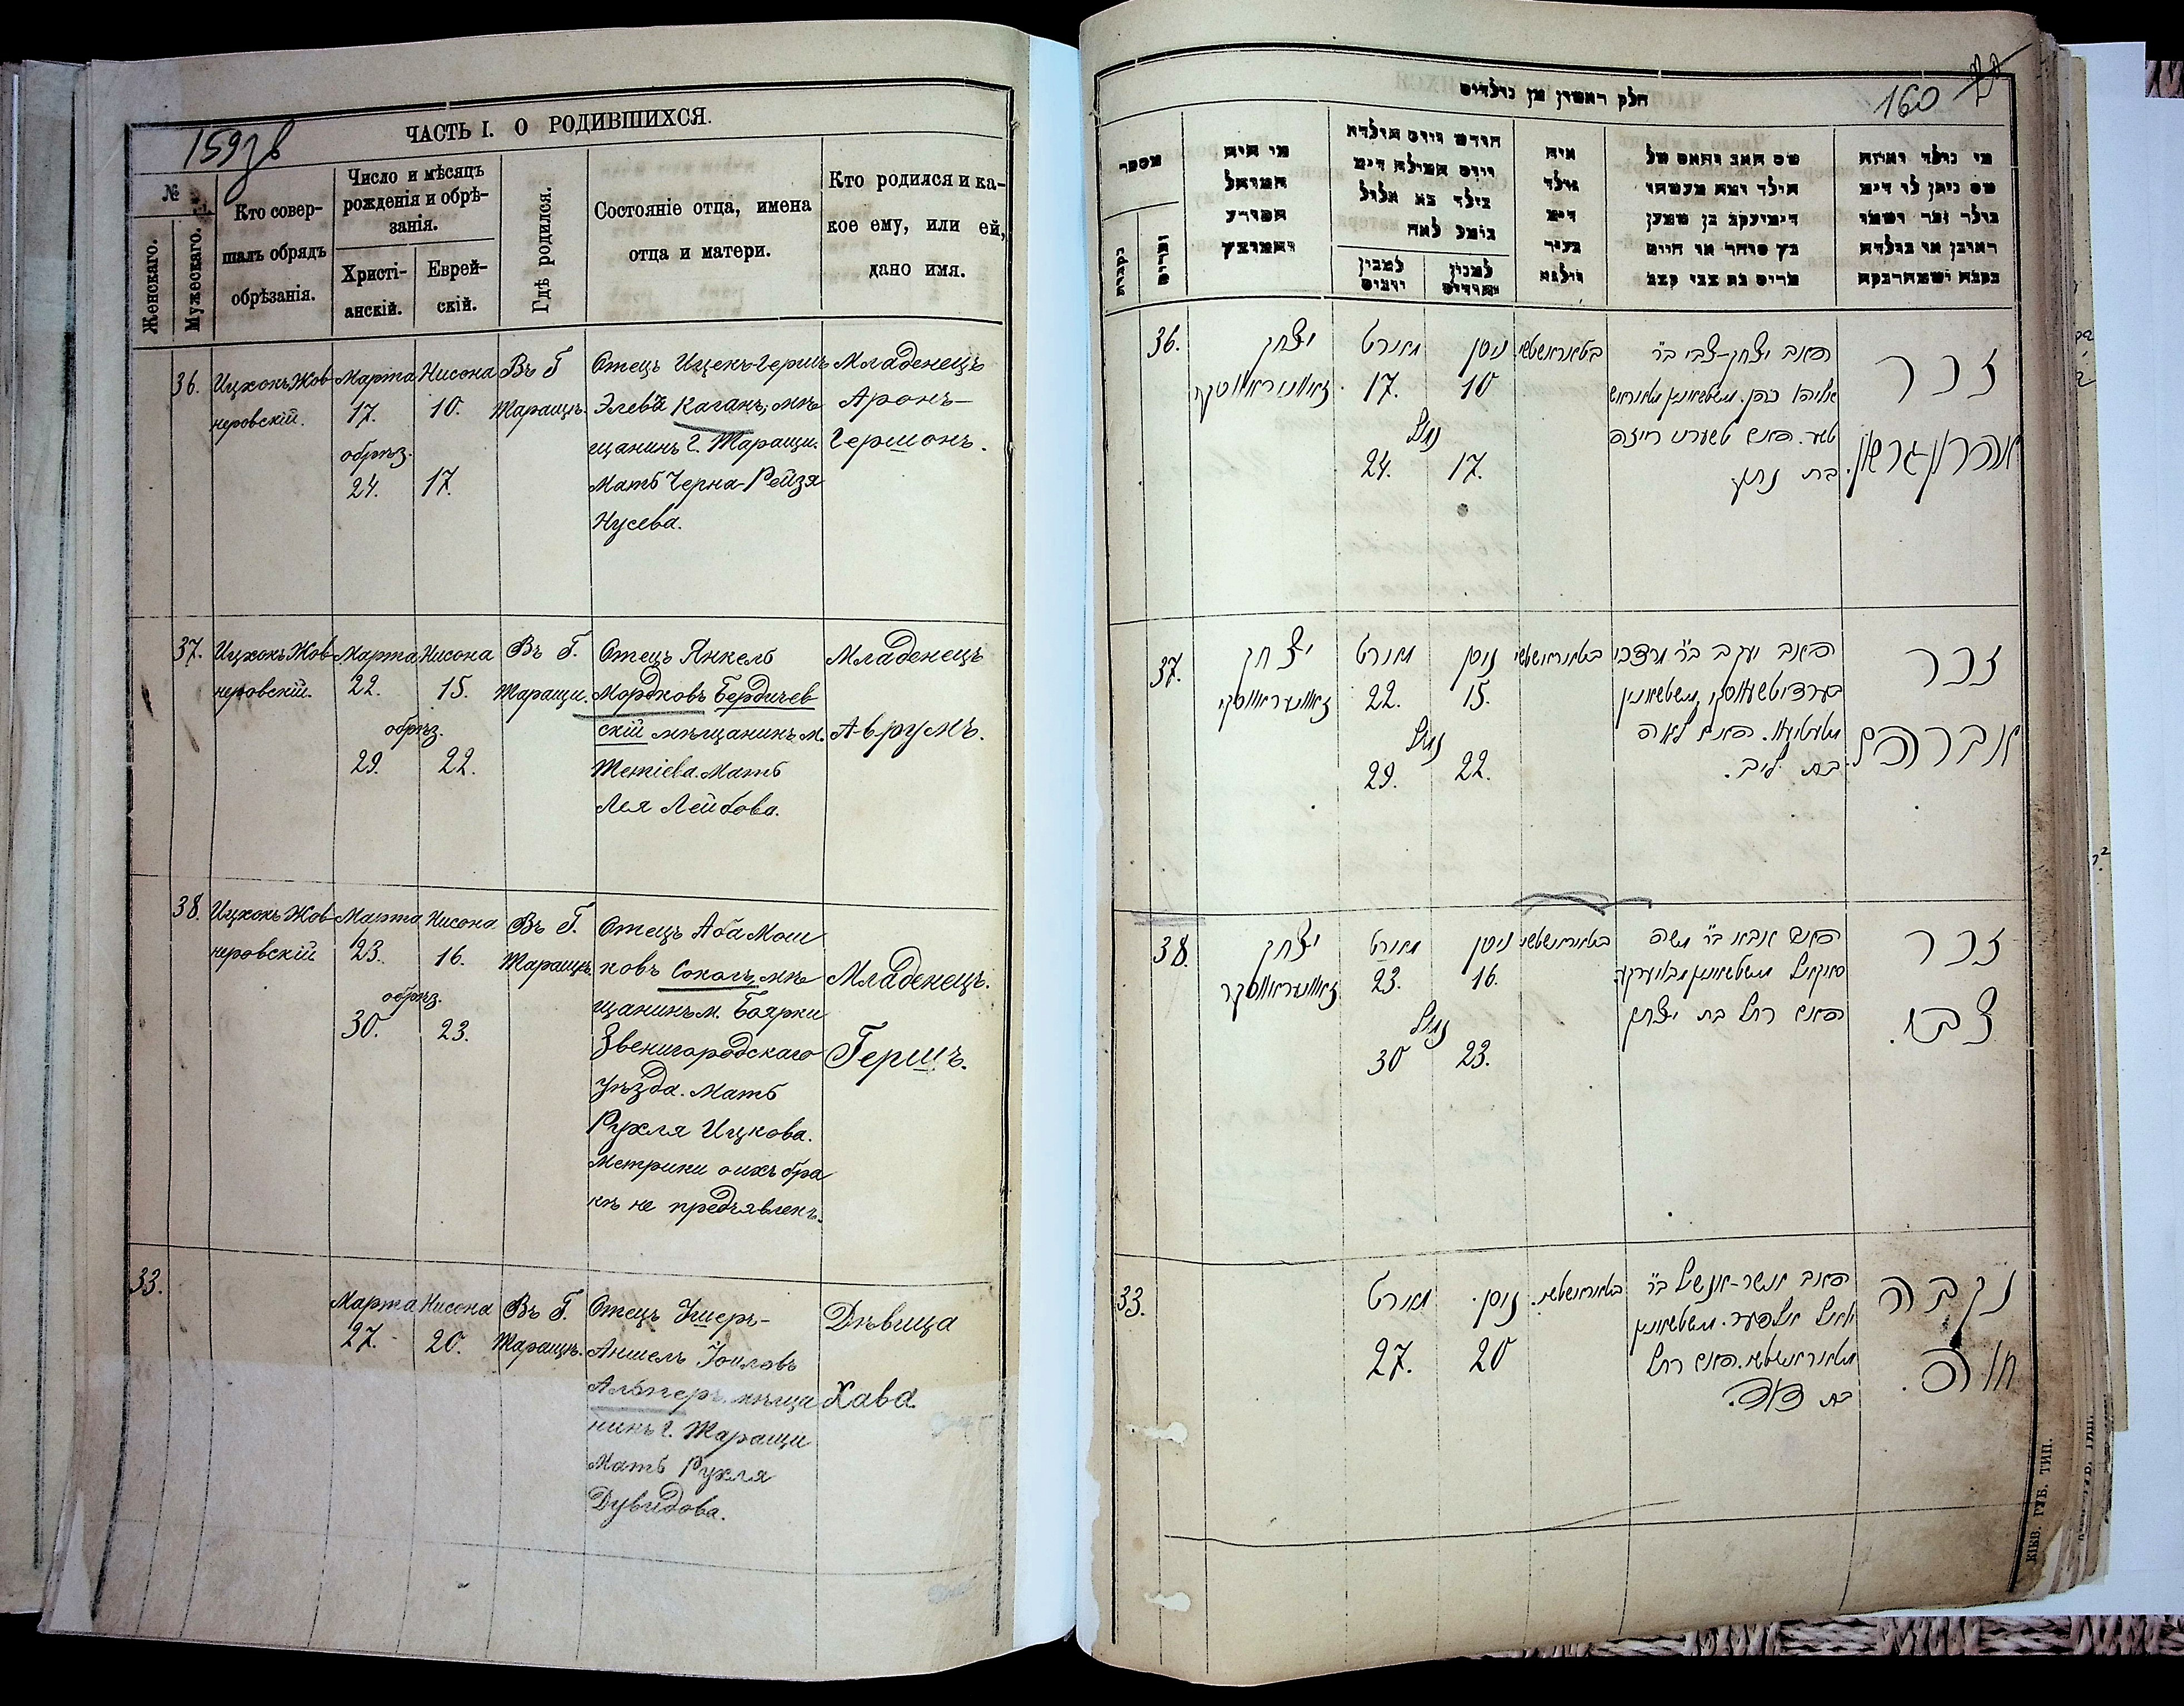 159 зв
ЧАСТЬ I. О РОДИВШИХСЯ.
№
Женскаго.
Мужескаго.
Кто совер-
шалъ обрядъ
обрѣзанія.
Число и мѣсяцъ
рожденія и обрѣ-
занія.
Христі-
анскій.
Еврей-
скій.
Гдѣ родился.
Состояніе отца, имена
отца и матери.
Кто родился и ка-
кое ему, или ей,
дано имя.
36.
Ицхокъ Жов-
неровскій.
Марта
17.
обрѣз.
24.
Нисона
10.
17.
Въ Г.
Таращѣ.
Отецъ Ицекъ-Герш
Элевъ Каганъ, мѣ-
щанинъ г. Таращи.
Мать Черна-Рейзя
Нусева.
Младенецъ
Аронъ-
Гершонъ.
37.
Ицхокъ Жов-
неровскій.
Марта
22.
обрѣз.
29.
Нисона
15.
22.
Въ Г.
Таращи.
Отецъ Янкель
Мордковъ Бердичев
скій мѣщанинъ м.
Тетіева. Мать
Лея Лейбова.
Младенецъ
Аврумъ.
38.
Ицхокъ Жов-
неровскій
Марта
23.
обрѣз.
30.
Нисона
16.
23.
Въ Г.
Таращѣ.
Отецъ Аба Мош
ковъ Соколъ, мѣ
щанинъ м. Боярки
Звенигородскаго
уѣзда. Мать
Рухля Ицкова.
Метрики о ихъ бра
кѣ не предъявленъ.
Младенецъ.
Гершъ.
33.
Марта
27.
Нисона
20.
Въ Г.
Таращѣ.
Отецъ Ушеръ-
Аншель Іоиловъ
Альперъ, мѣща
нинъ г. Таращи
Мать Рухля
Дувидова.
Дѣвица
Хава.
160
חלק ראשון מן נולדים
מספר
נקבות
זכרים
מי היה
המוהל
חודש ויום הולדה
ויום המילה
איה
נולד
בעיר
ווילנא
שם האב והאם של
מי נולד ואיזה
36.
יצחק
מארט
17.
ניסן
10
נימול
24.
17.
האב יצחק-צבי ב"ר
בת נתן
זכר
אהרון גרשון.
37.
יצחק
מארט
22.
ניסן
15.
נימול
29.
22.
האב יעקב ב"ר מרדכי
האם לאה
בת ליב.
זכר
אברהם
38.
יצחק
מארט
23.
ניסן
16.
נימול
30
23.
האב אבא ב"ר משה
האם רחל בת יצחק
זכר
צבי.
33.
מארט
27.
ניסן.
20
האב אשר-אנשיל ב"ר
האם רחל
בת דוד.
נקבה
חוה.
КІЕВ. ГУБ. ТИП.